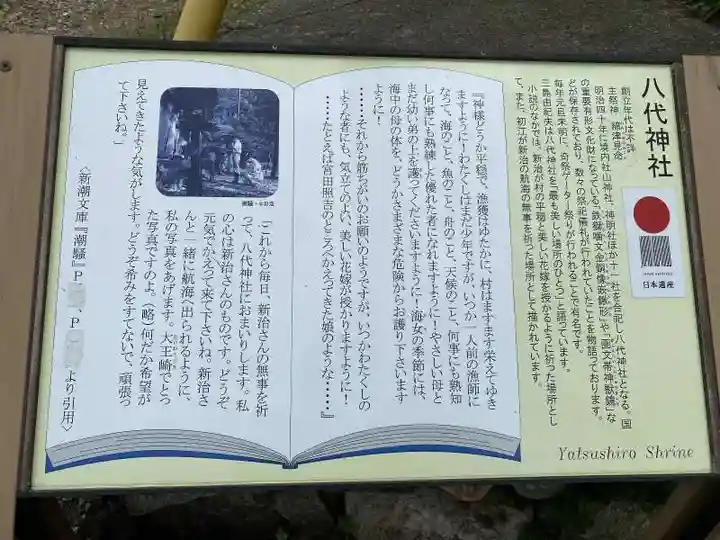 八代神社
創立年代は不詳
主祭神 綿津見命
明治四十年に境内社山神社、神明社ほか十一社を合祀し八代神社となる。国
の重要有形文化財になっている「鉄獅噛文金銅象嵌鍬形」や「画文帯神獣鏡」な
どが保存されており、数々の祭祀儀礼が行われていたことを物語っております。
毎年元旦未明に、奇祭ゲーター祭りが行われることで有名です。
三島由紀夫は八代神社を「最も美しい場所のひとつ」と語っています。
小説のなかでは、新治が村の平穏と美しい花嫁を授かるように祈った場所とし
て、また、初江が新治の航海の無事を祈った場所として描かれています。
日本遺産
『神様どうか平穏で、漁獲はゆたかに、村はますます栄えてゆき
ますように！わたくしはまだ少年ですが、いつか一人前の漁師に
なって、海のこと、魚のこと、舟のこと、天候のこと、何事にも熟知
し何事にも熟練した優れた者になれますように！やさしい母と
まだ幼い弟の上を護ってくださいますように！海女の季節には、
海中の母の体を、どうかさまざまな危険からお護り下さいます
ように！
……それから筋ちがいのお願いのようですが、いつかわたくしの
ような者にも、気立てのよい、美しい花嫁が授かりますように！
……たとえば宮田照吉のところへかえってきた娘のような……』
「これから毎日、新治さんの無事を祈
って、八代神社におまいりします。私
の心は新治さんのものです。どうぞ
元気でかえって来て下さいね。新治さ
んと一緒に航海へ出られるように、
私の写真をあげます。大王崎でとっ
た写真ですのよ。（略）何だか希望が
見えてきたような気がします。どうぞ希みをすてないで、頑張っ
て下さいね。」
〈新潮文庫『潮騒』P 、P より引用〉
Yatsushiro Shrine